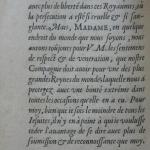 auec plus de liberté dans ces Royaumes, où
la persecution a esté si cruelle & si san-
glante. Mais, MADAME, en quelque
endroit du monde que nous soyons, nous
aurons toujours pour V. M. les sentimens
de respect & de veneration, que nostre
Compagnie doit auoir pour vne des plus
grandes Reynes du monde, laquelle nous a
protegez auec vne bonté extreme dans
toutes les occasions qu'elle en a eu. Pour
moy, bien que ie sois le moindre de tous les
Iesuites, il n'y en a point à qui ie voulusse
ceder l'auantage de se dire auec plus de
soûmission & de reconnoissance que moy,